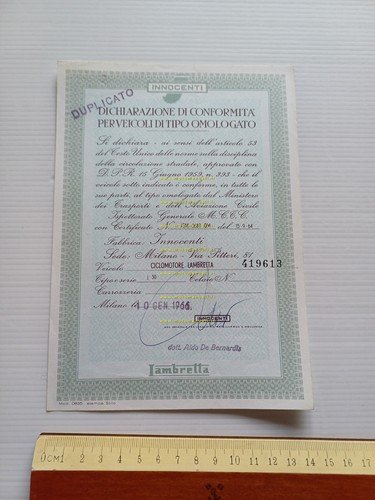 INNOCENTI
DUPLICATO
DICHIARAZIONE DI CONFORMITA'
PER VEICOLI DI TIPO OMOLOGATO
Si dichiara - ai sensi dell'articolo 53
del Testo Unico delle norme sulla disciplina
della circolazione stradale, approvato con
D.P.R. 15 Giugno 1959, n. 393 - che il
veicolo sotto indicato è conforme, in tutte le
sue parti, al tipo omologato dal Ministero
dei Trasporti e dell'Aviazione Civile
Ispettorato Generale M.C.T.C.
con Certificato N. OM del
Fabbrica Innocenti
Sede: Milano - Via Pitteri, 81
Veicolo CICLOMOTORE LAMBRETTA 419613
Tipo e serie Telaio N.
Carrozzeria
Milano li 10 GEN. 1966
INNOCENTI
dott. Aldo De Bernardis
Lambretta
0 CM 1 2 3 4 5 6 7 8 9 10 11 12 13 14 15 16 17